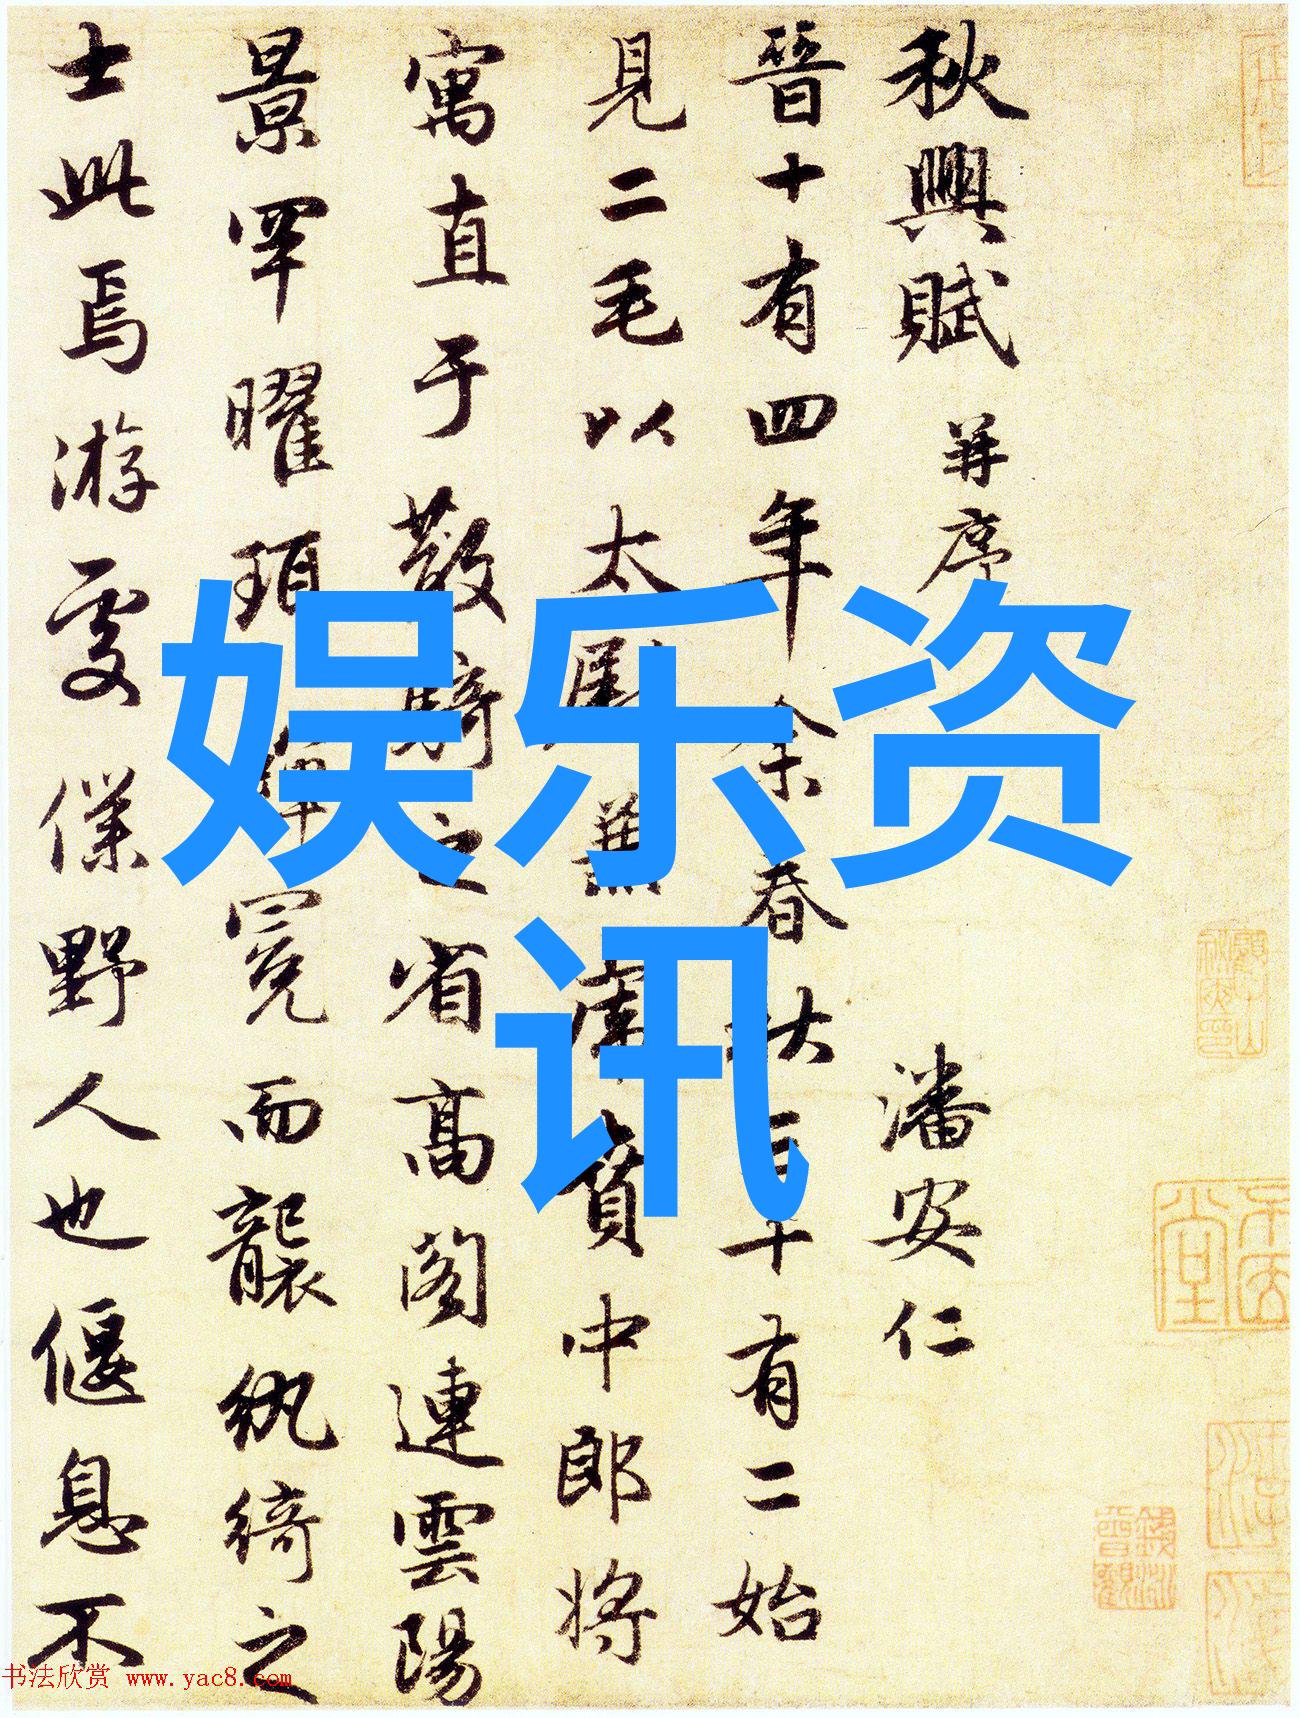 秋興賦 并序 潘安仁
晉十有四年余春秋三十有二始
見二毛以太尉兼虎賁中郎将
寓直于散騎之省高閣連雲陽
景罕曜珥蟬冕而襲紈綺之
士此焉游處僕野人也偃息不
娱乐资
讯
书法欣赏 www.yac8.com